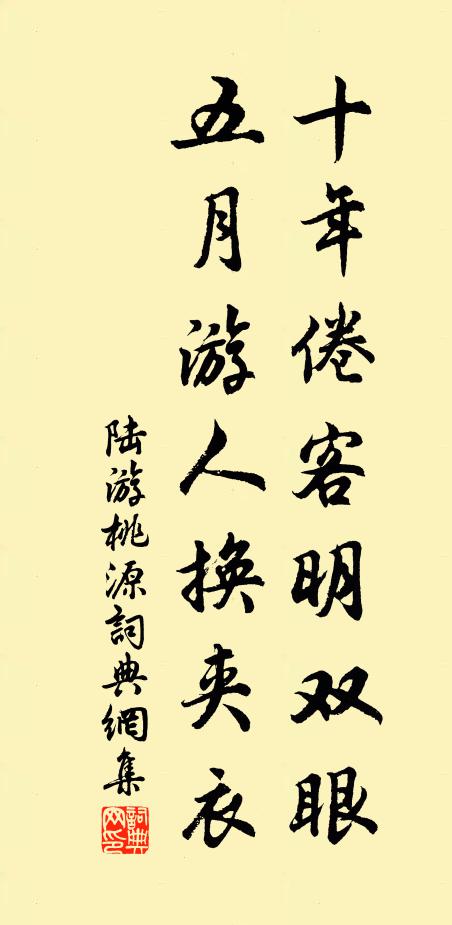 十年倦客明双眼
五月游人换夹衣
陆游桃源詞典網集
詞典網印